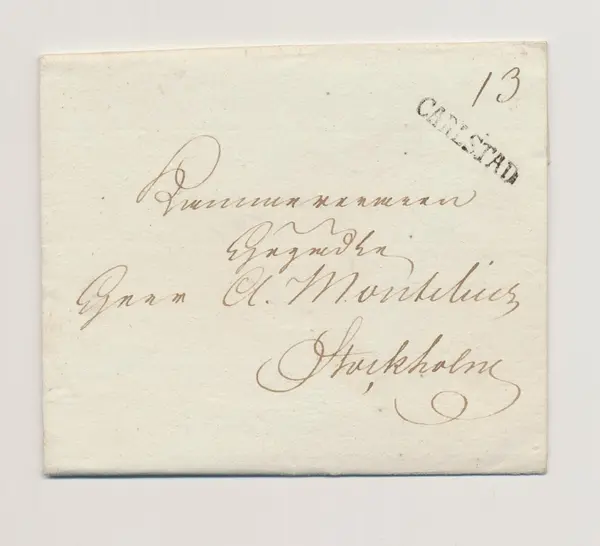 13
CARLSTAD
Kammereraren
Herr A. Montelius
Stockholm